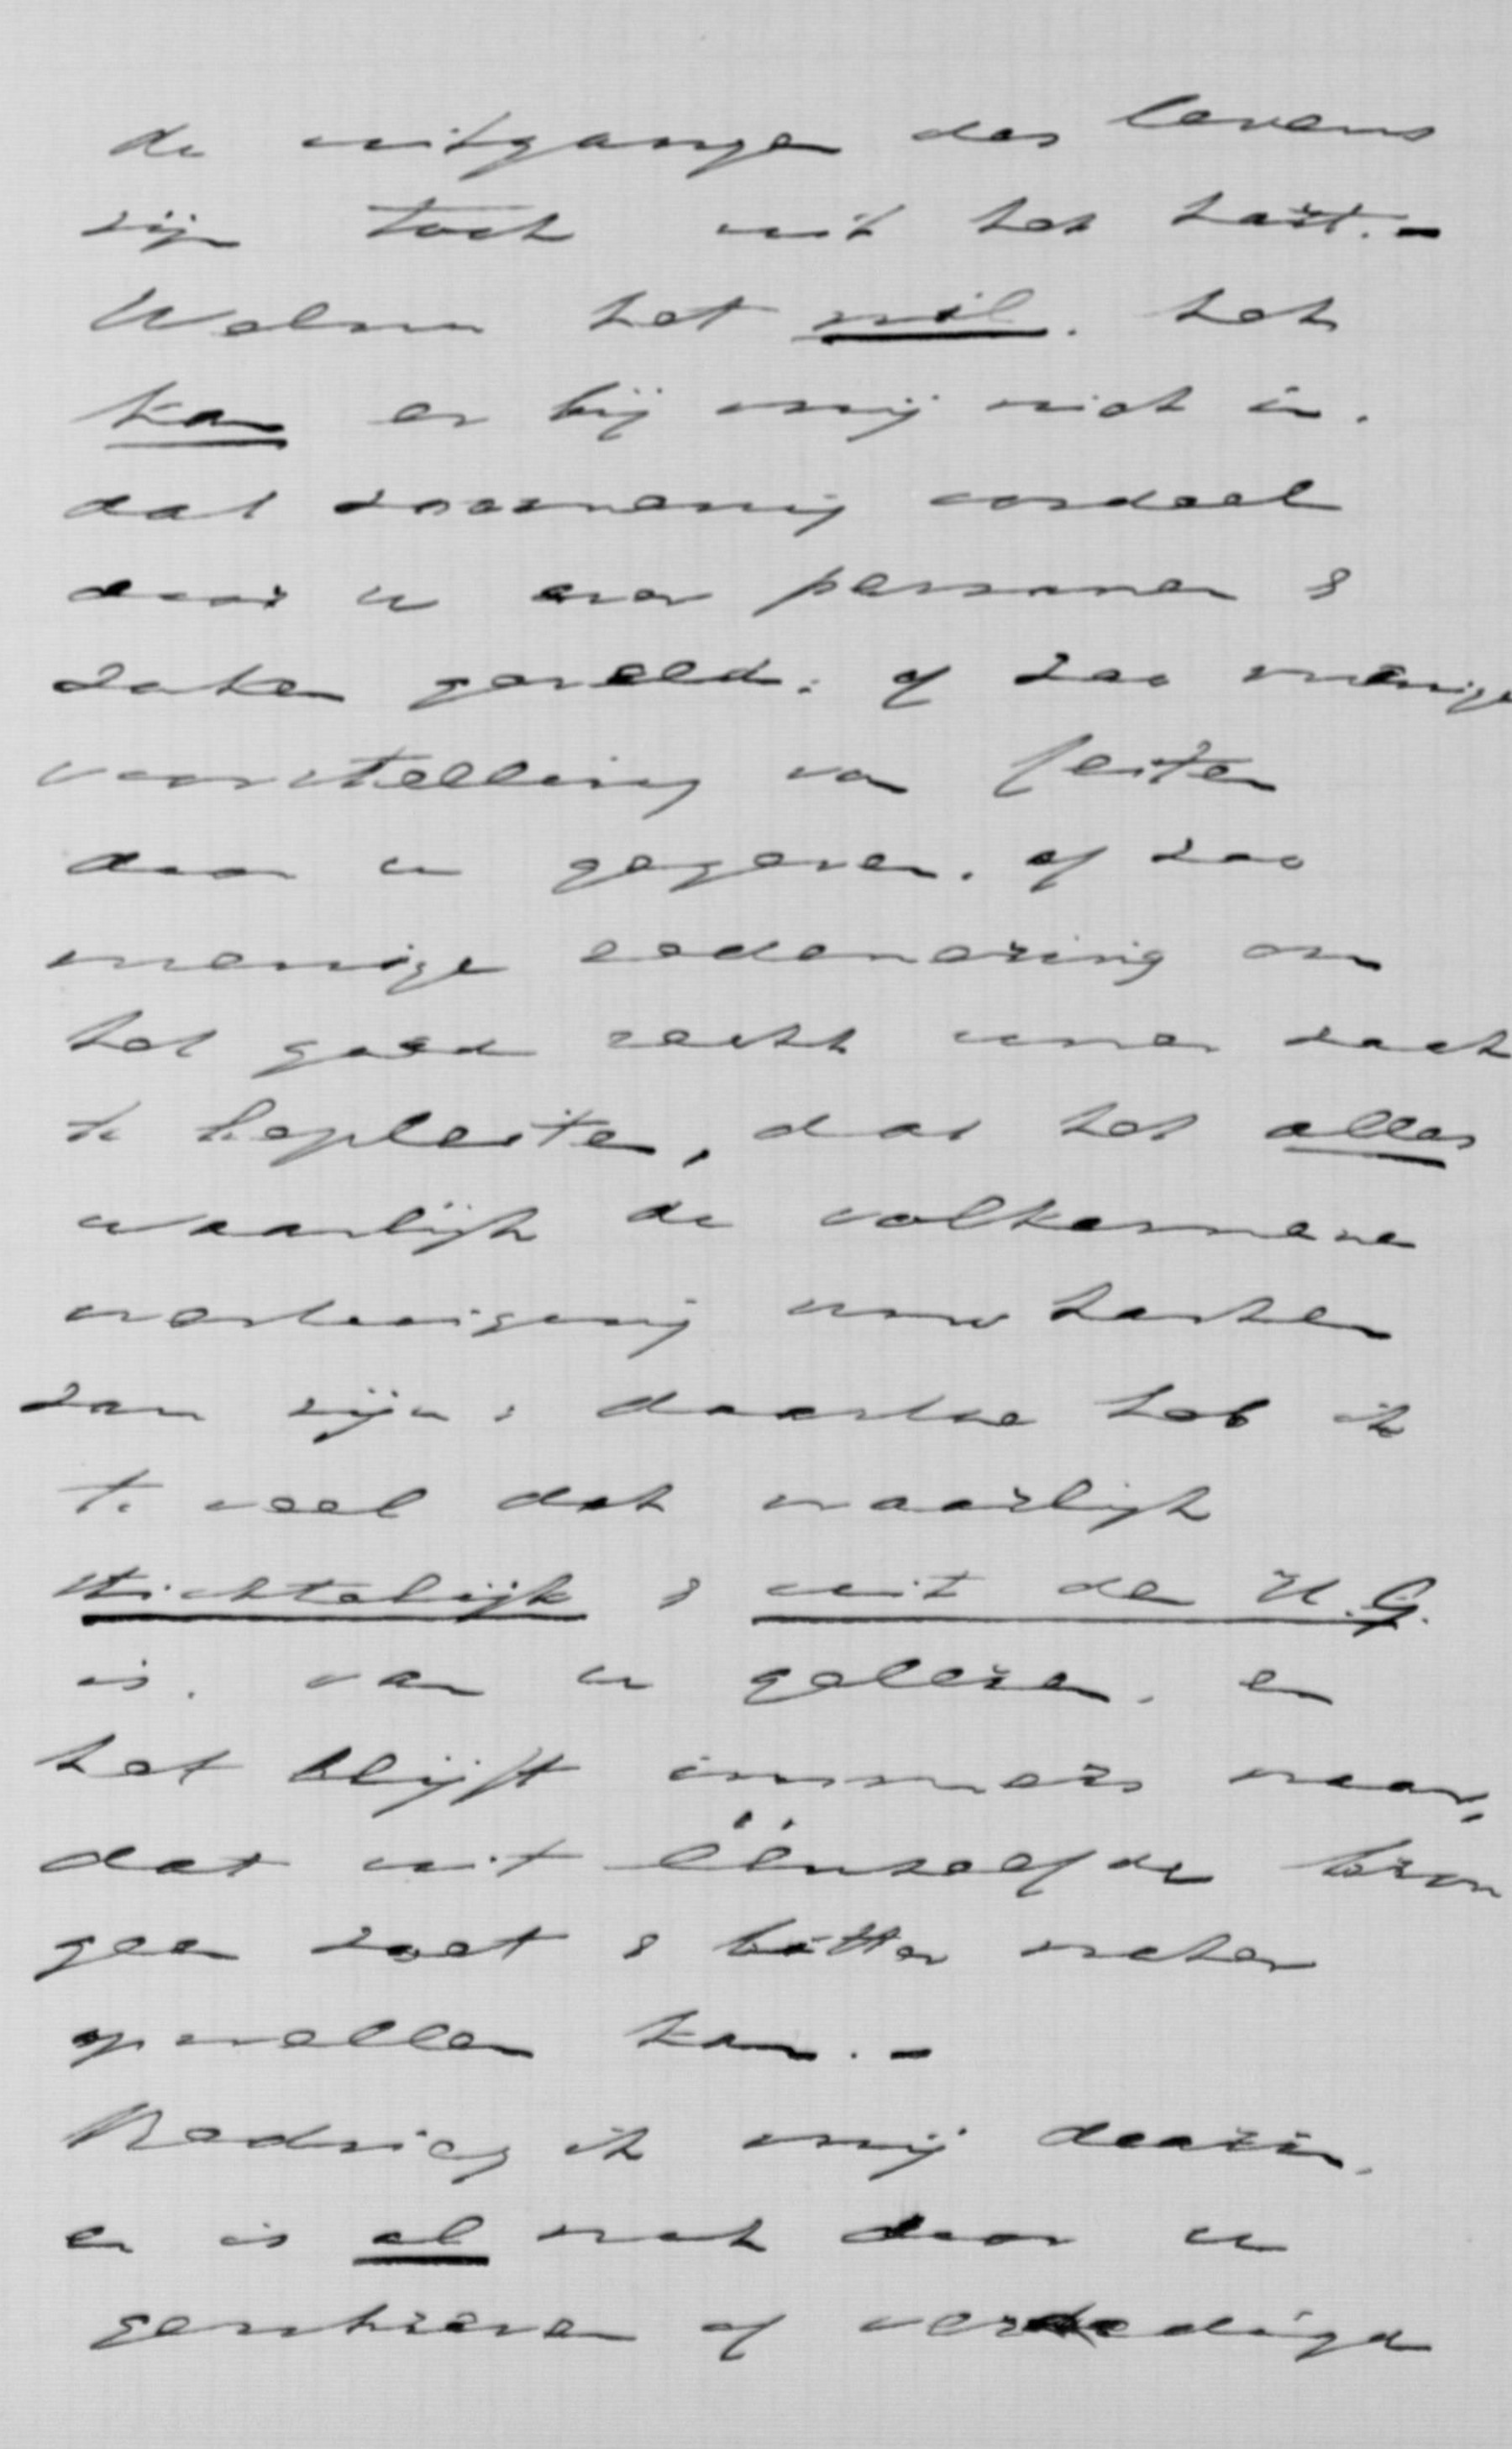 de uitgangen des levens
zijn toch uit het hart. -
Welnu het wil. het
kan er bij mij niet in.
dat zoomenig oordeel
door u over personen &
zaken geveld: of zoo menige
voorstelling van feiten
door u gegeven. of zoo
menige redenering om
het goed recht uwer zaak
te bepleiten, dat het alles
waarlijk de volkomene
overtuiging uws harten
zou zijn: daartoe heb ik
te veel dat waarlijk
stichtelijk & uit de H. G.
is. van u gelezen. en
het blijft immers waar,
dat uit éénzelfde bron
geen zoet & bitter water
opwellen kan. -
Bedrieg ik mij daarin.
en is al wat door u
geschreven of verdedigd